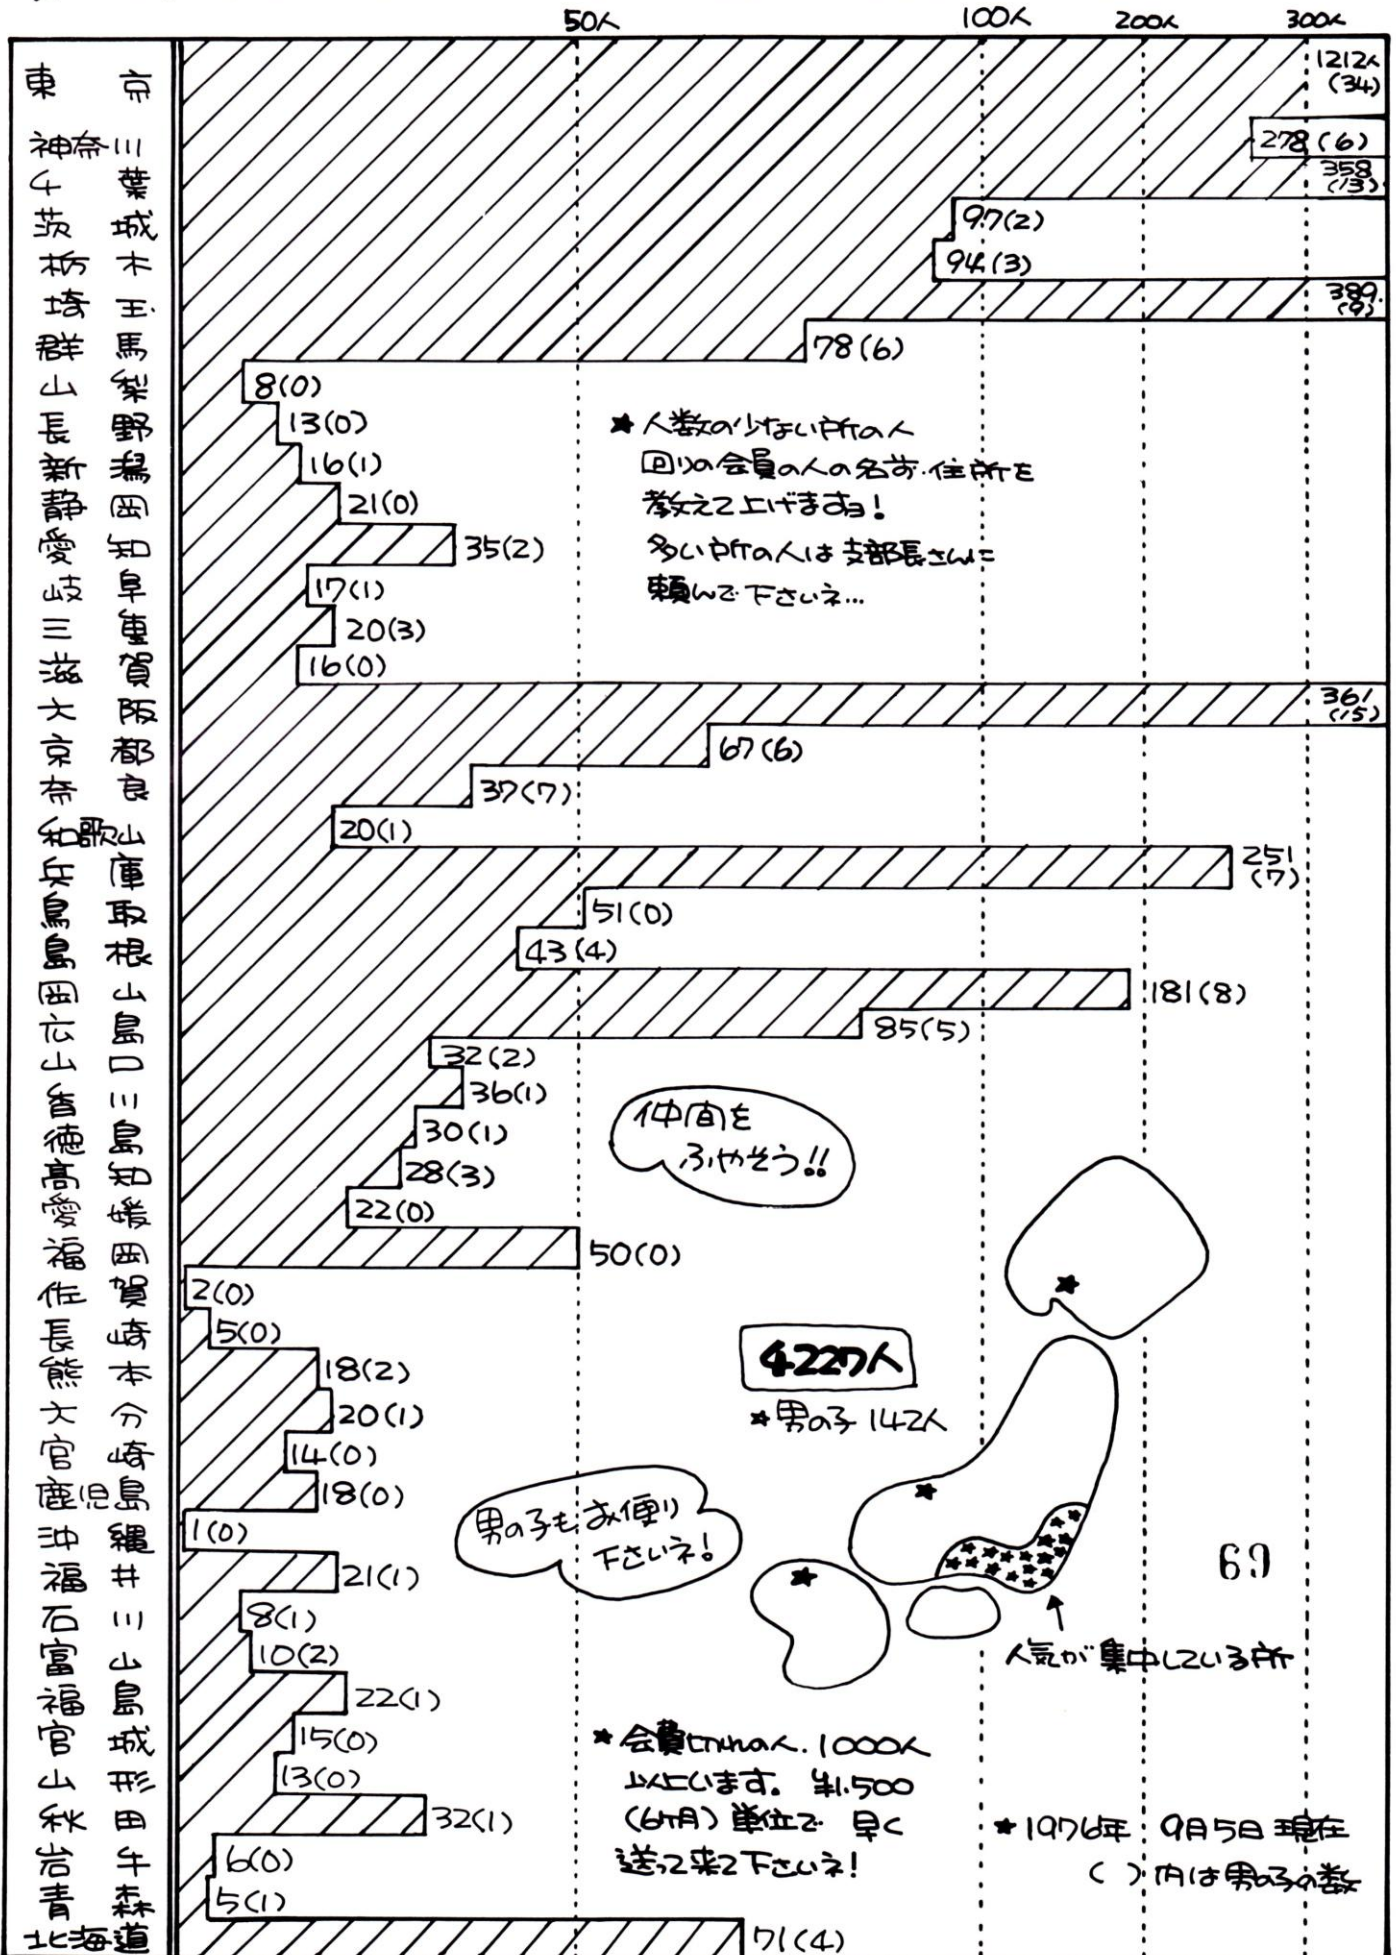 50人 100人 200人 300人
東京 1212人 (34)
神奈川 278(6)
千葉 358 (13)
茨城 97(2)
栃木 94(3)
埼玉 389 (9)
群馬 78(6)
山梨 8(0)
長野 13(0)
新潟 16(1)
静岡 21(0)
愛知 35(2)
岐阜 17(1)
三重 20(3)
滋賀 16(0)
大阪 361 (15)
京都 67(6)
奈良 37(7)
和歌山 20(1)
兵庫 251 (7)
鳥取 51(0)
島根 43(4)
岡山 181(8)
広島 85(5)
山口 32(2)
香川 36(1)
徳島 30(1)
高知 28(3)
愛媛 22(0)
福岡 50(0)
佐賀 2(0)
長崎 5(0)
熊本 18(2)
大分 20(1)
宮崎 14(0)
鹿児島 18(0)
沖縄 1(0)
福井 21(1)
石川 8(1)
富山 10(2)
福島 22(1)
宮城 15(0)
山形 13(0)
秋田 32(1)
岩手 6(0)
青森 5(1)
北海道 71(4)
★人数の少ない所の人
回りの会員の人の名前・住所を
教えて上げますヨ!
多い所の人は支部長さんに
頼んで下さいネ…
仲間を
ふやそう!!
4227人
★男の子 142人
男の子もお便り
下さいネ!
69
人気が集中している所
★会費切れの人、1000人
以上います。 ¥1,500
(6ヶ月)単位で 早く
送って来て下さいネ!
★1976年 9月5日現在
( )内は男の子の数